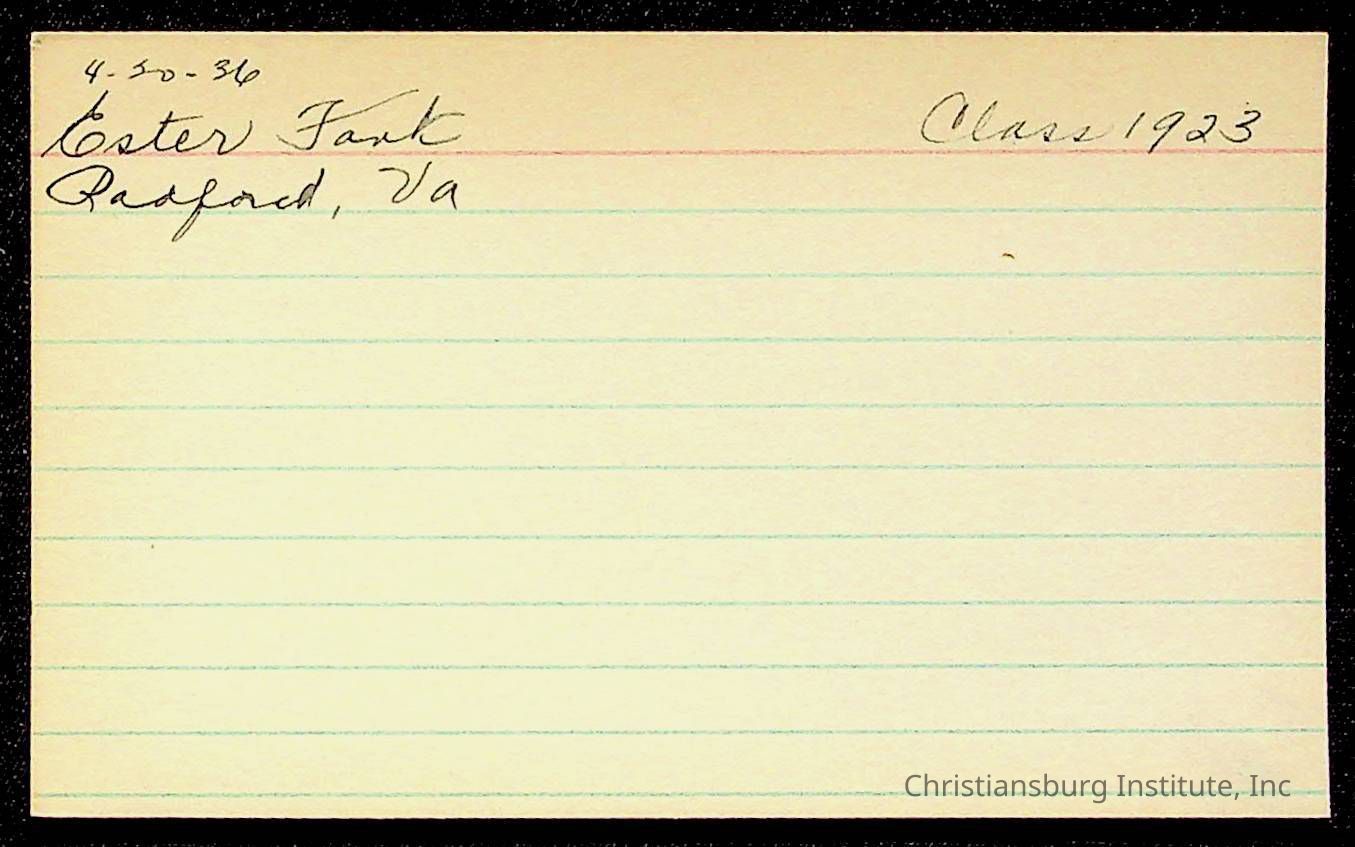 4-30-36
Ester Fark Class 1923
Radford, Va
Christiansburg Institute, Inc